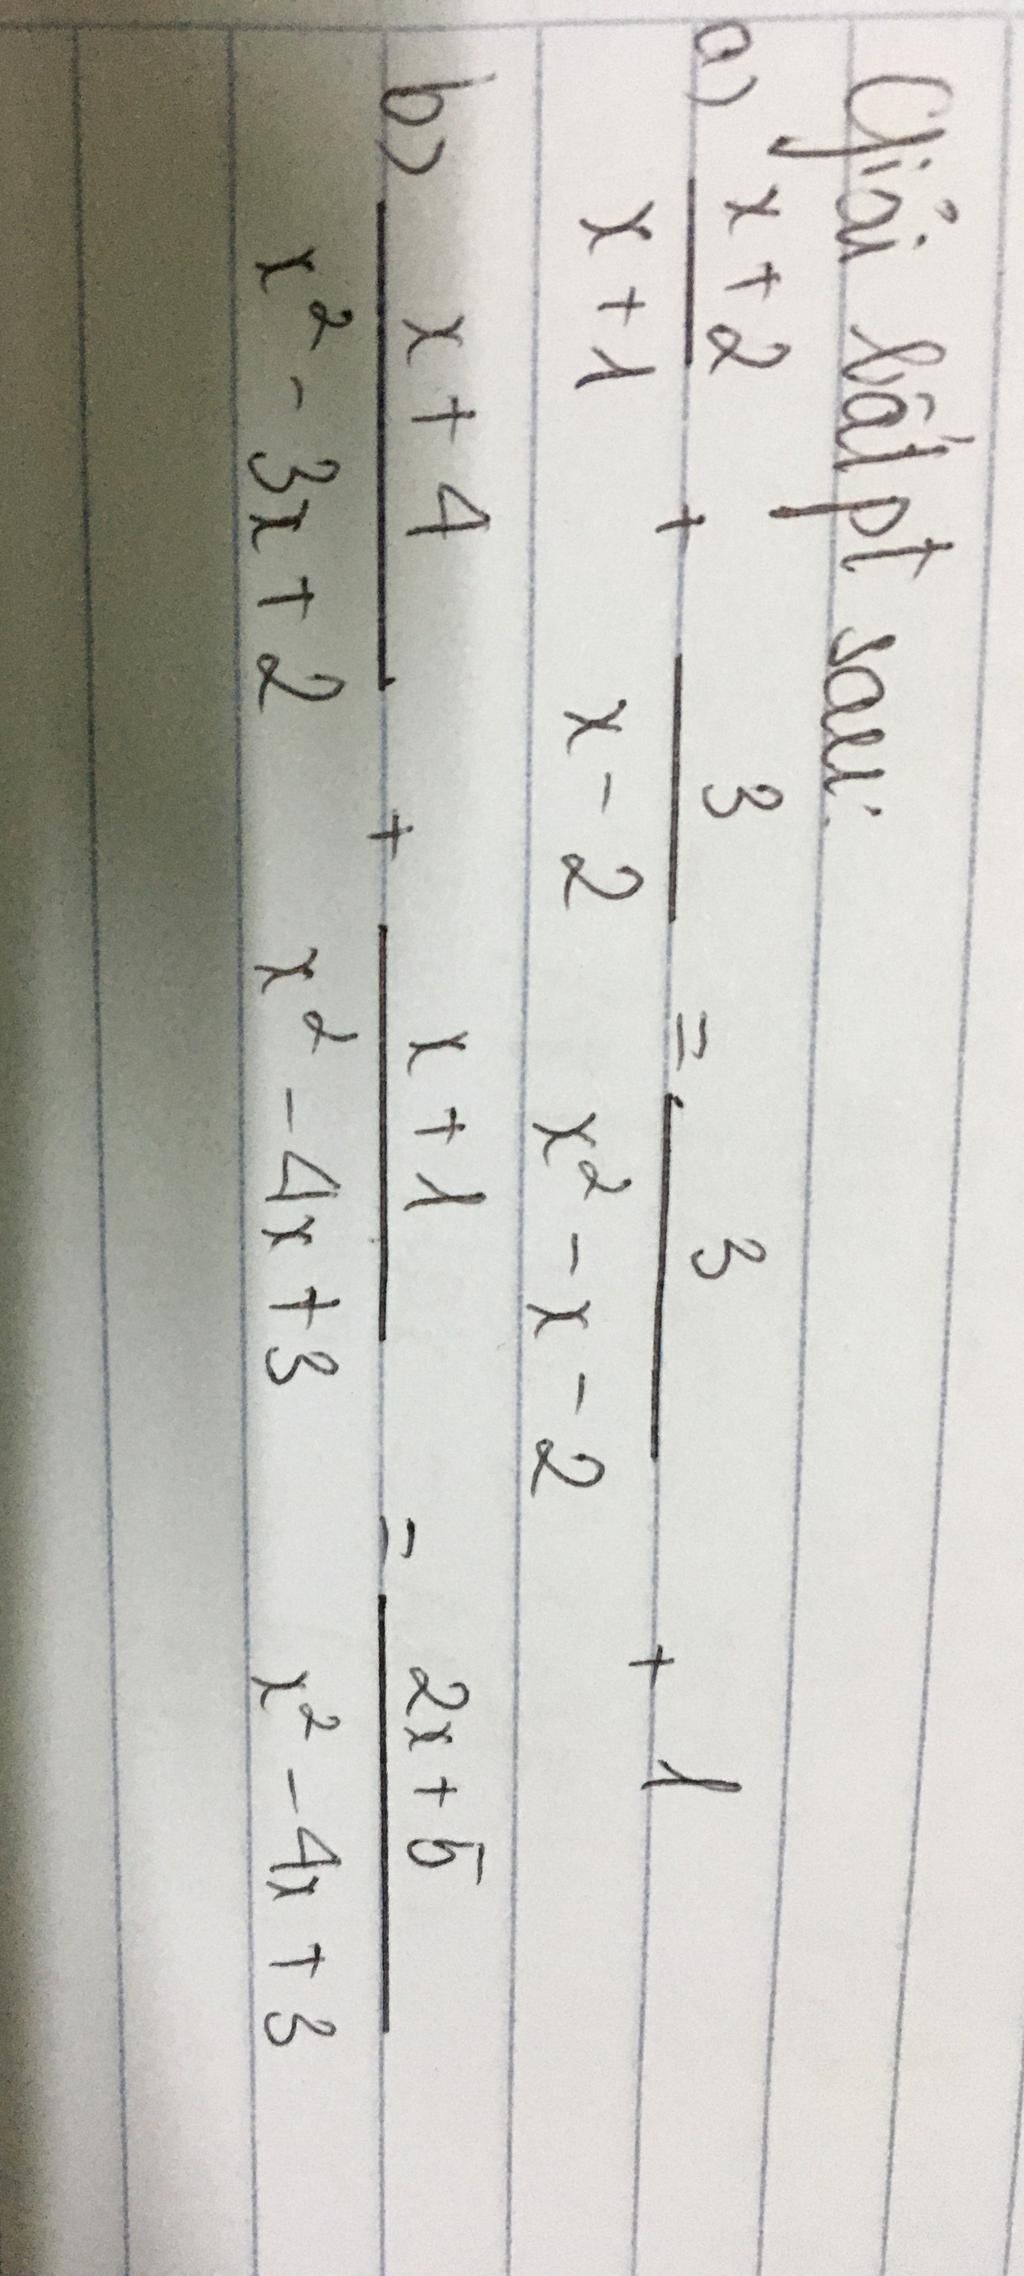 Giải bất pt sau:
a) \frac{x+2}{x+1} + \frac{3}{x-2} = \frac{3}{x^2-x-2} + 1
b) \frac{x+4}{x^2-3x+2} + \frac{x+1}{x^2-4x+3} = \frac{2x+5}{x^2-4x+3}